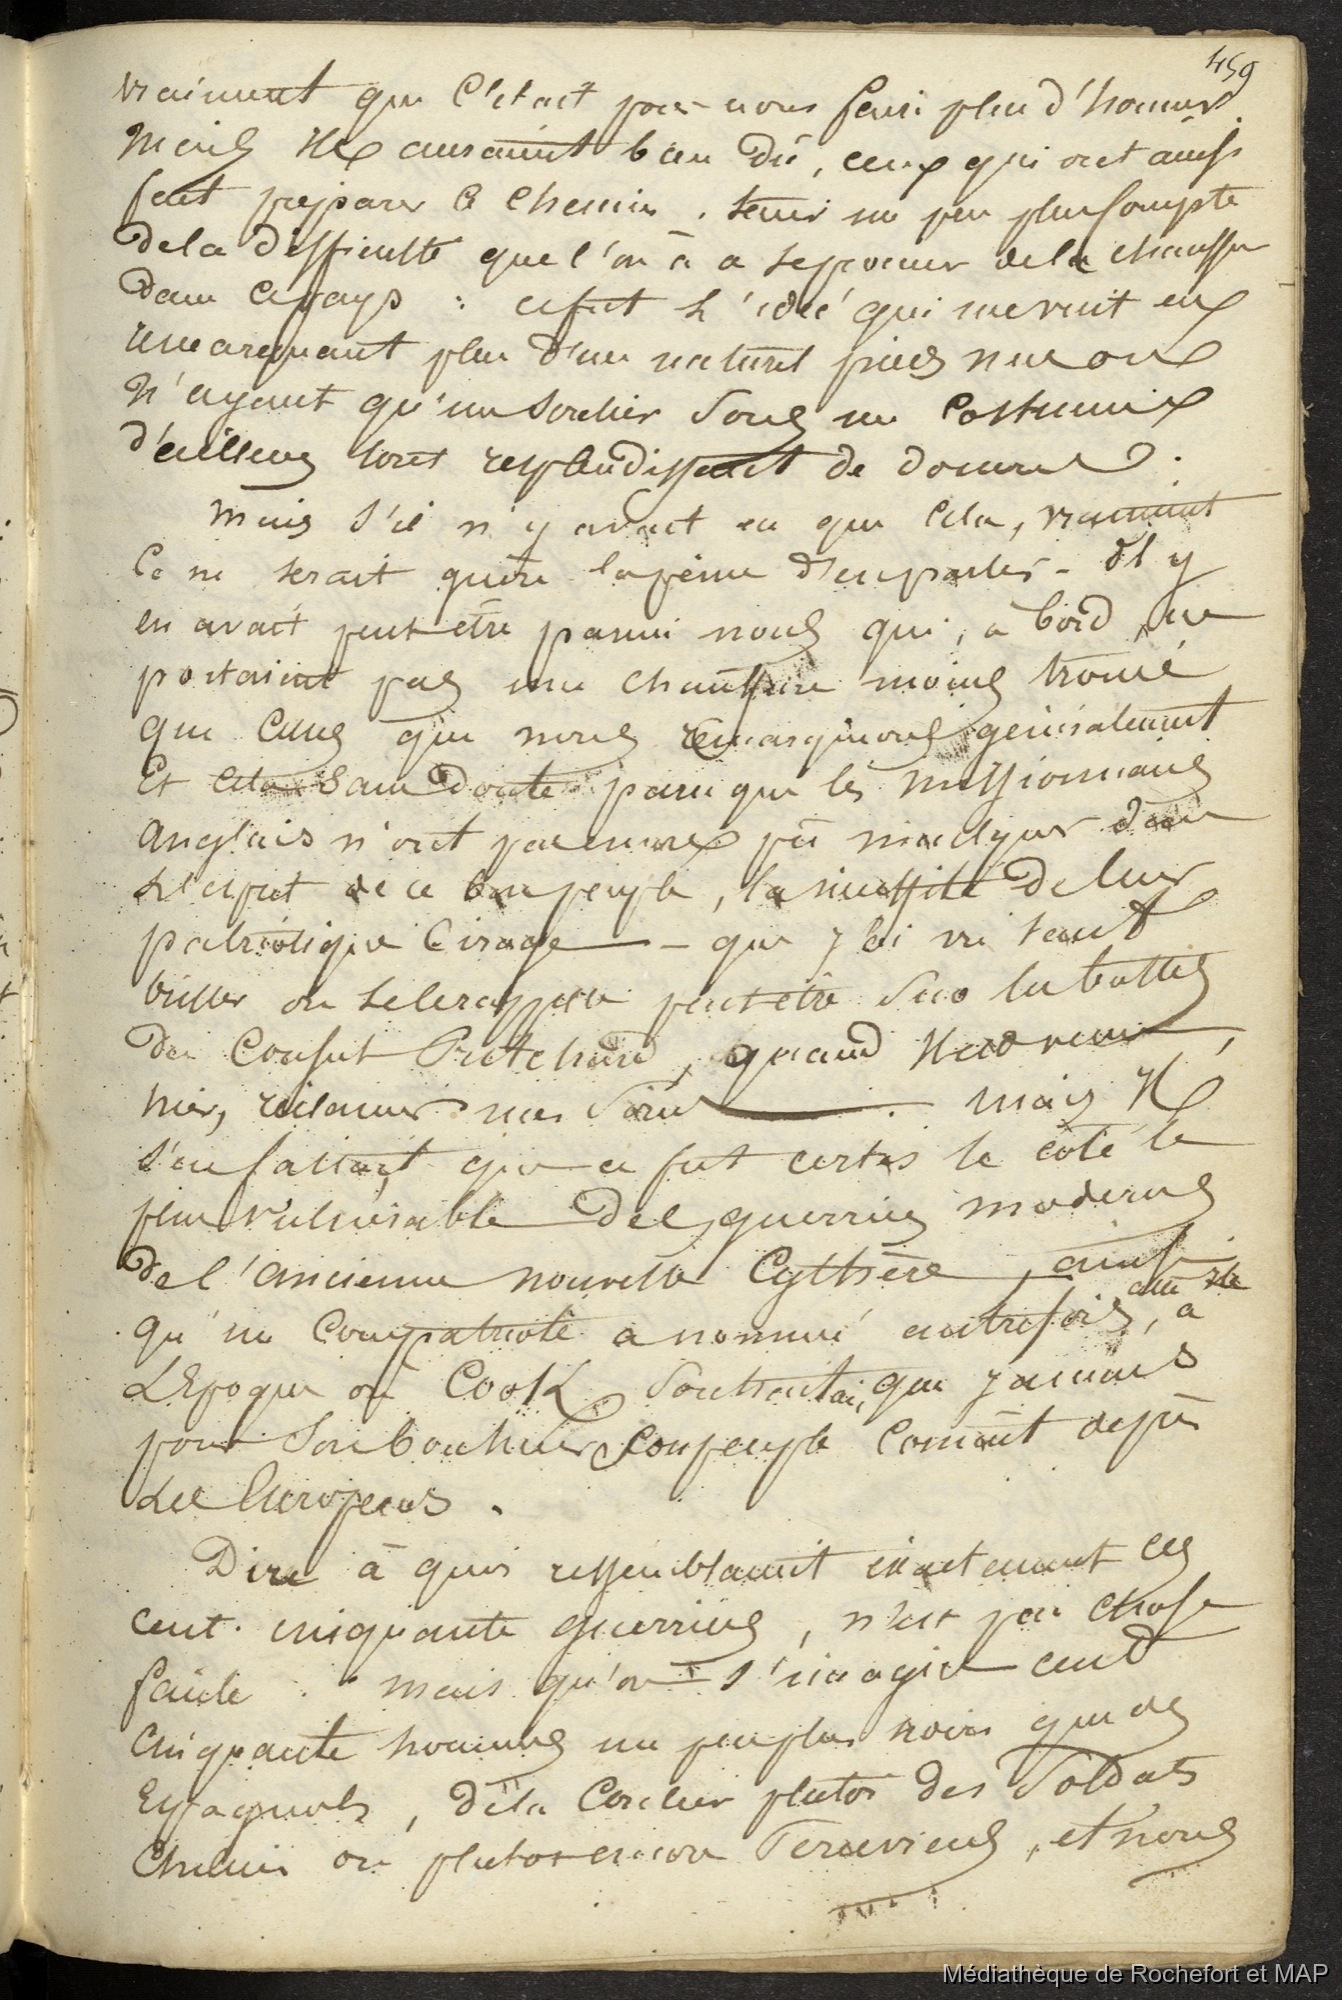 459
vraiment que c'etait pour nous faire plus d'honneur.
Mais ils auraient bien dû, ceux qui ont ainsi
fait préparer le chemin, tenir un peu plus compte
de la difficulté que l'on a a se procurer de la chaussure
dans ce pays : ce fut l'idée qui me vint en
remarquant plus d'un naturel pieds nus ou
n'ayant qu'un soulier sous un costume
d'ailleurs tout resplendissant de dorures.
Mais s'il n'y avait eu que cela, vraiment
Ce ne serait guère la peine d'en parler - Il y
en avait peut être parmi nous qui, à bord, ne
portaient pas une chaussure moins trouée
que ceux que nous remarquions généralement
Et cela sans doute parce que les missionnaires
anglais n'ont pas encore pû inculquer dans
l'esprit de ce bon peuple, la nécessité de leur
patriotique Cirage - que j'ai vu tant
briller ou peut être sur les bottes
du Consul Pritchard, quand
hier, mais il
s'en fallait que ce fut certes le côté le
plus vulnérable des guerriers modernes
de l'ancienne nouvelle Cythère, ainsi
qu'un compatriote a nommé autrefois, cette île a
L'Epoque où Cook souhaitait que jamais
pour son bonheur son peuple connût depuis
Les Européens.
Dire à quoi ressemblaient exactement ces
cent cinquante guerriers, n'est pas chose
facile. mais qu'on s'imagine cent
cinquante hommes un peu plus noirs que des
Espagnols, de la couleur plutot des Soldats
Chiliens ou plutot encore Péruviens, et nous
Médiathèque de Rochefort et MAP